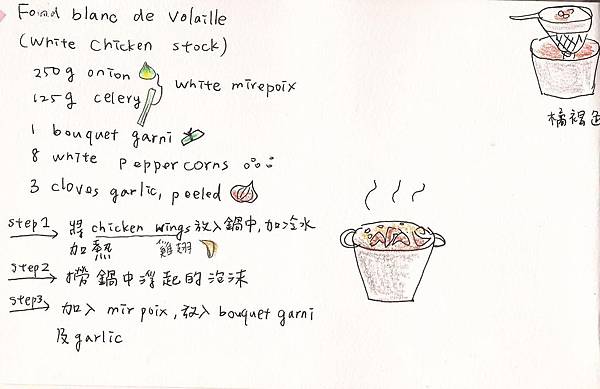 Fond blanc de volaille
(White Chicken stock)
250g onion
125g celery
white mirepoix
1 bouquet garni
8 white peppercorns
3 cloves garlic, peeled
step1 將 chicken wings 放入鍋中,加冷水
加熱 雞翅
step2 撈鍋中浮起的泡沫
step3 加入 mir poix,放入 bouquet garni
及 garlic
橘褐色